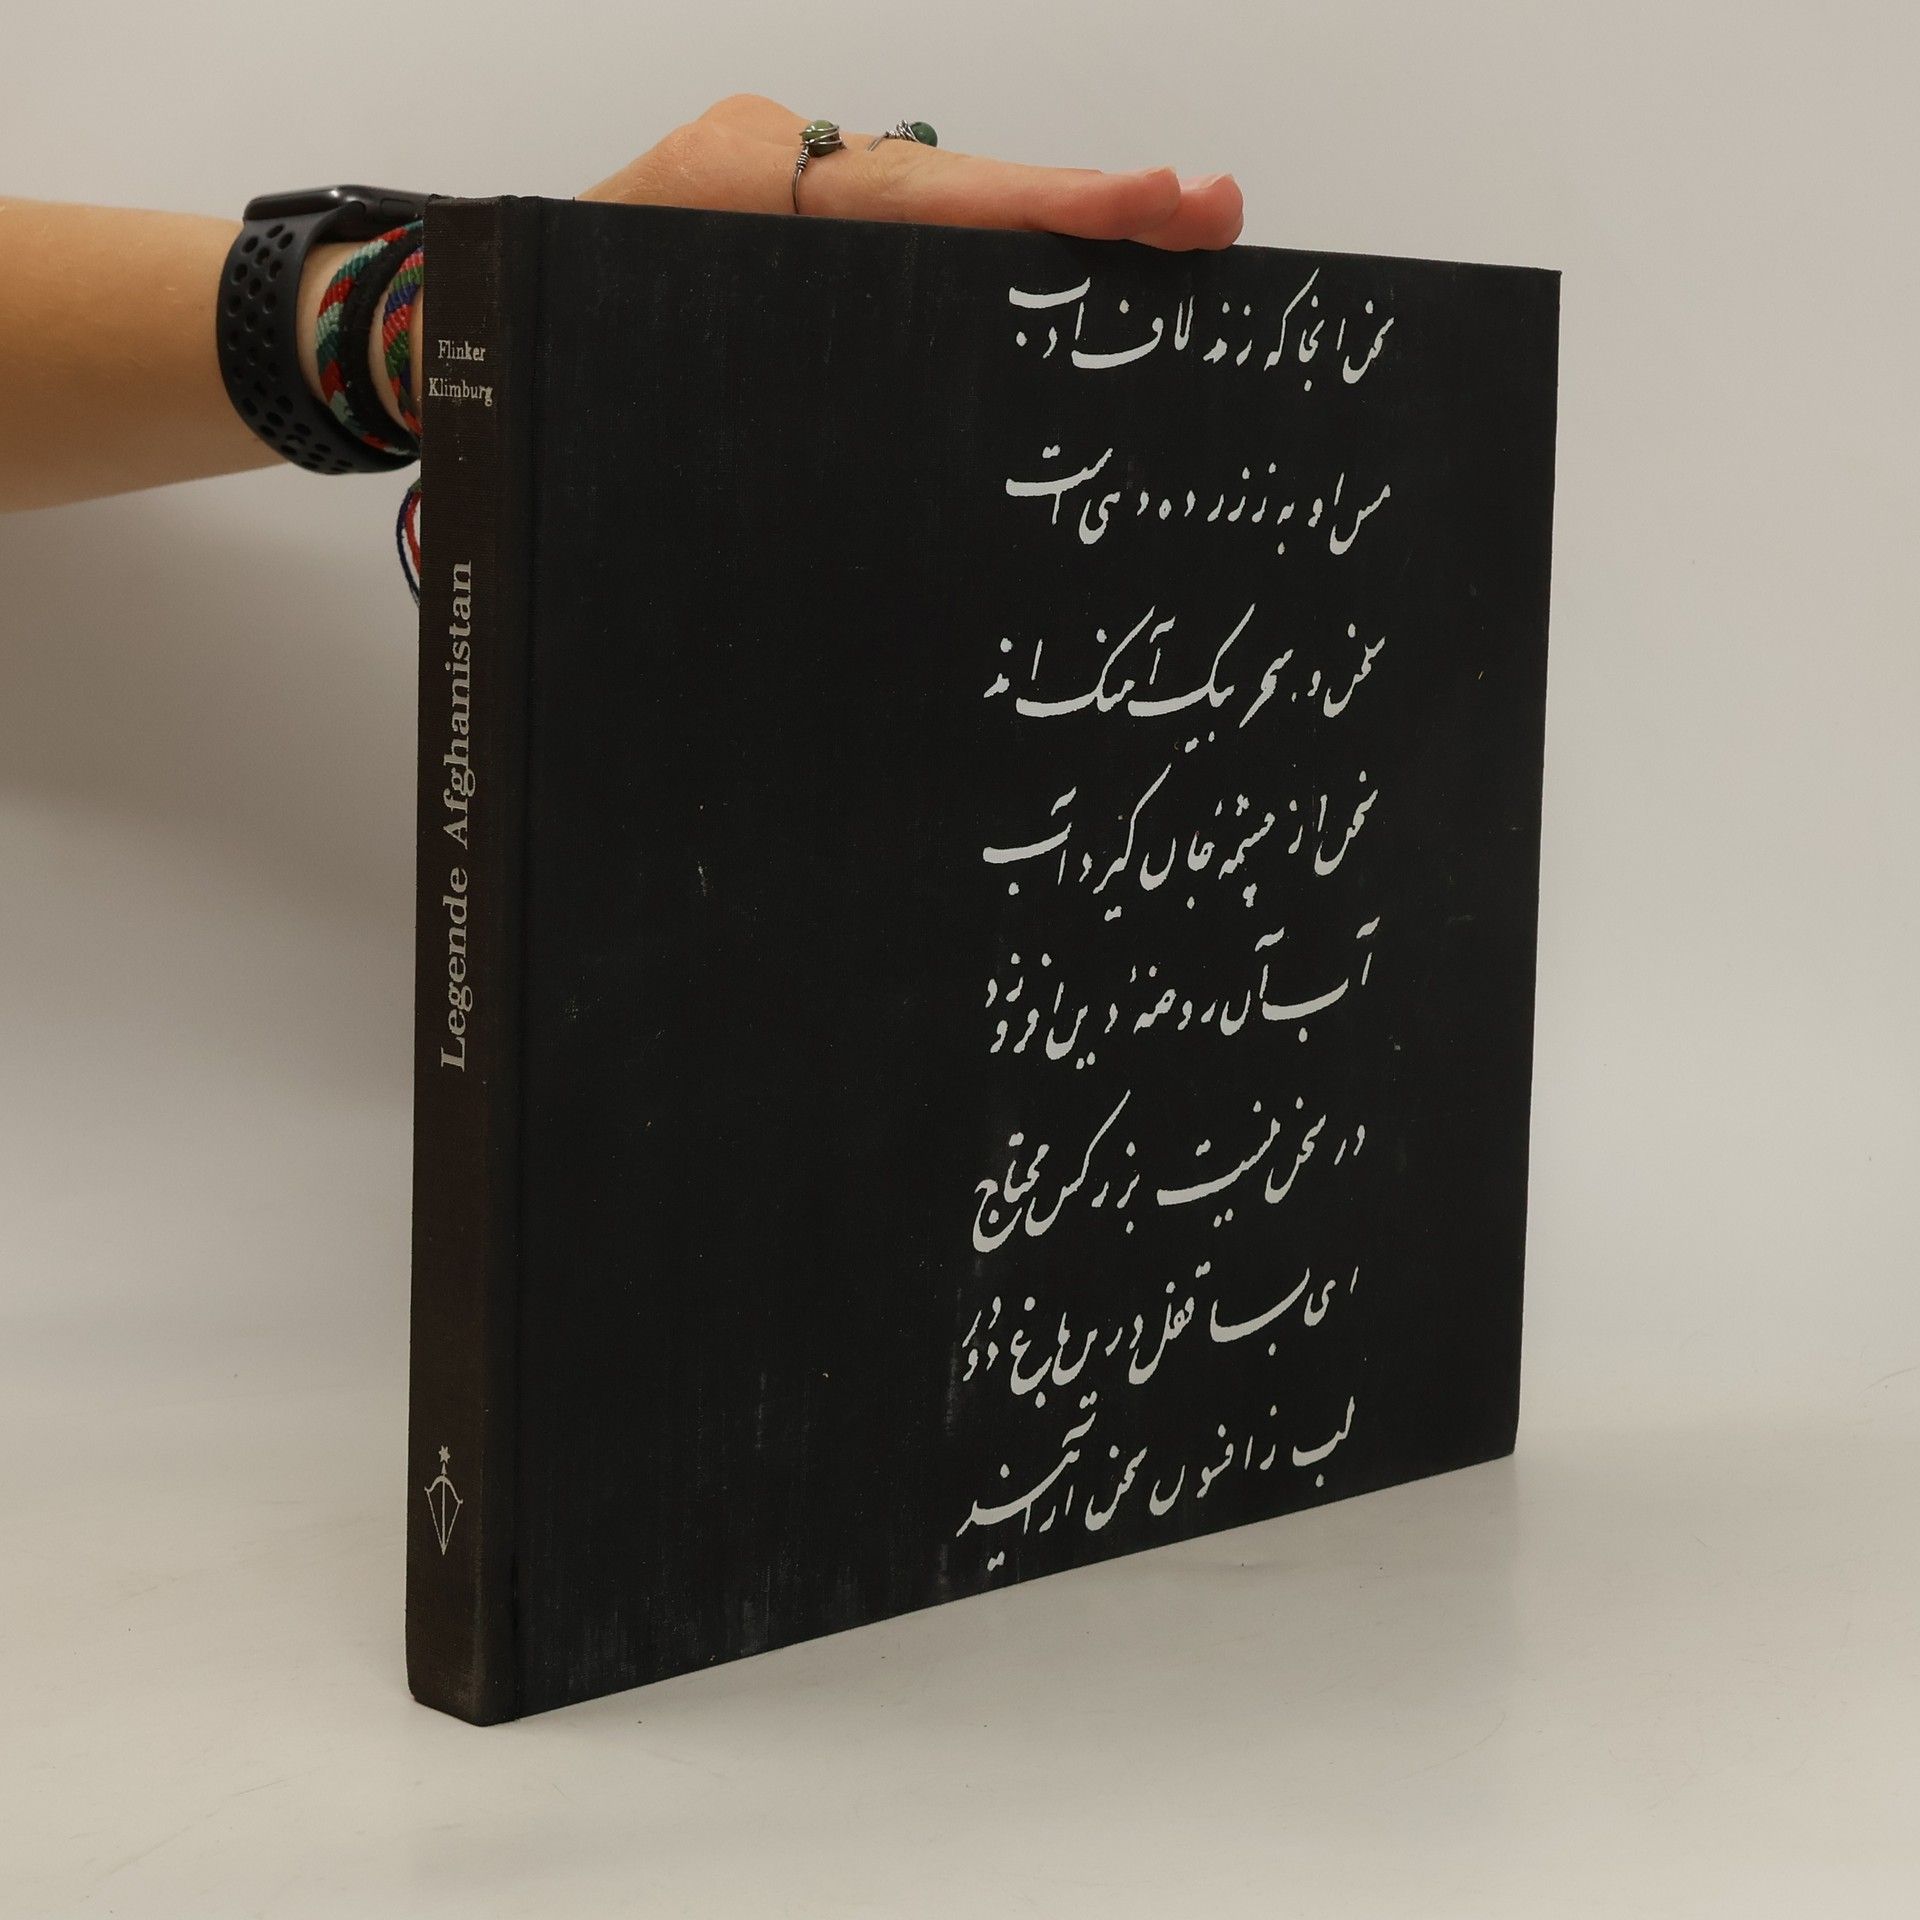 Flinker
Klimburg
Legende Afghanistan
سخن انجا که زند لاف ادب
مس او به ز زر ده دهی است
سخن و سحر بیک آهنک اند
سخن از چشمهٔ جان گیرد آب
آب آن روضهٔ دین افروزد
در سخن نیست بزر کس محتاج
ای بسا قفل درین
لب ز افسون سخن